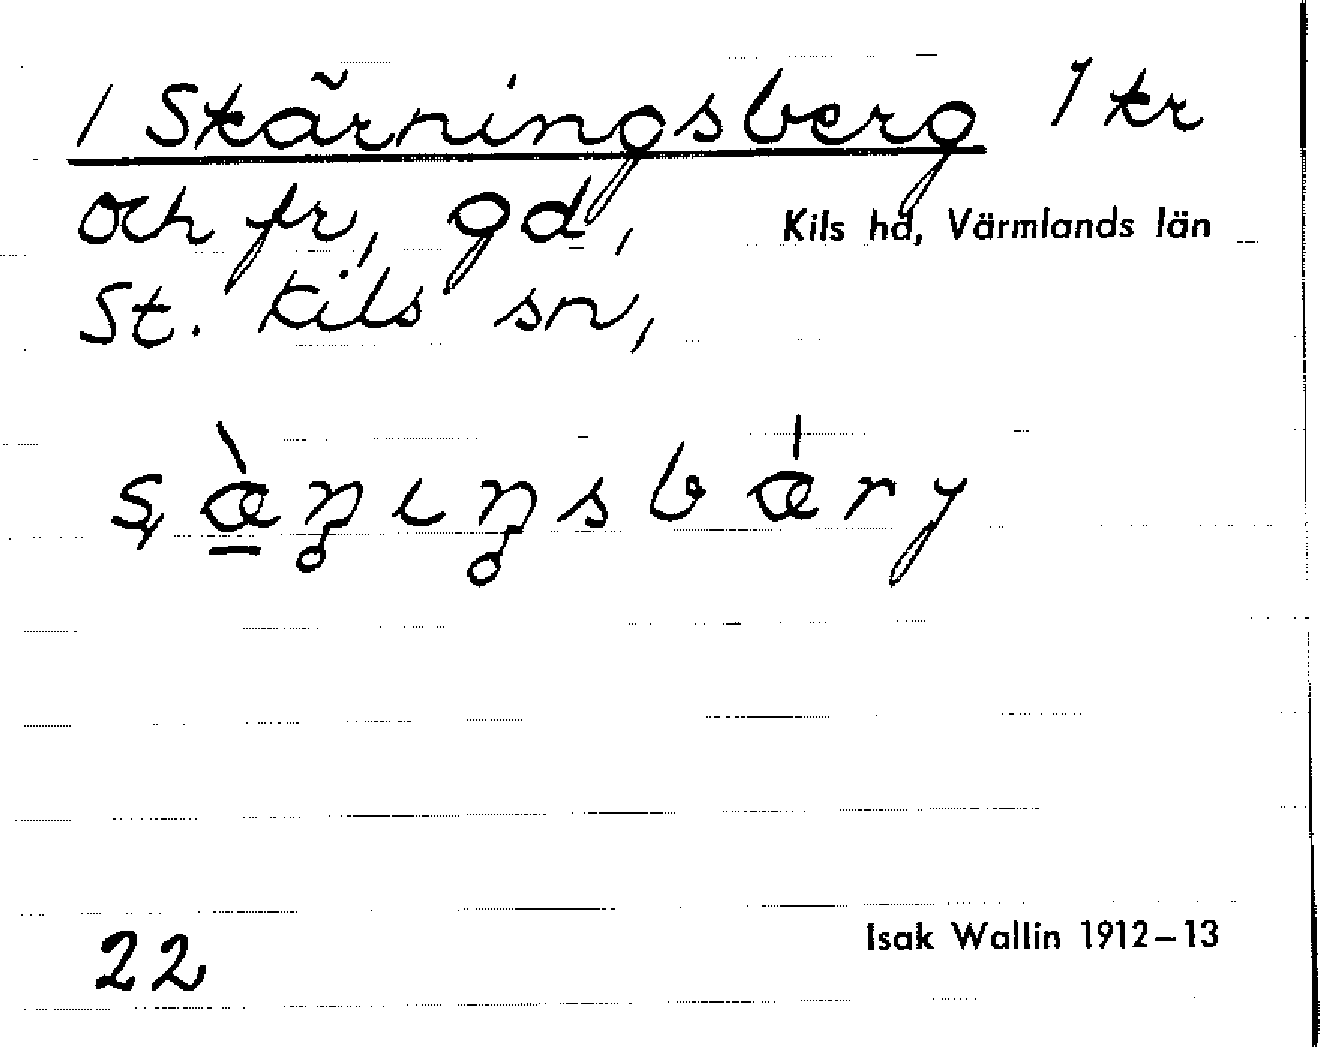 1 Skärningsberg 1 kr
och fr, gd,
Kils hd, Värmlands län
St. Kils sn,
22
Isak Wallin 1912–13